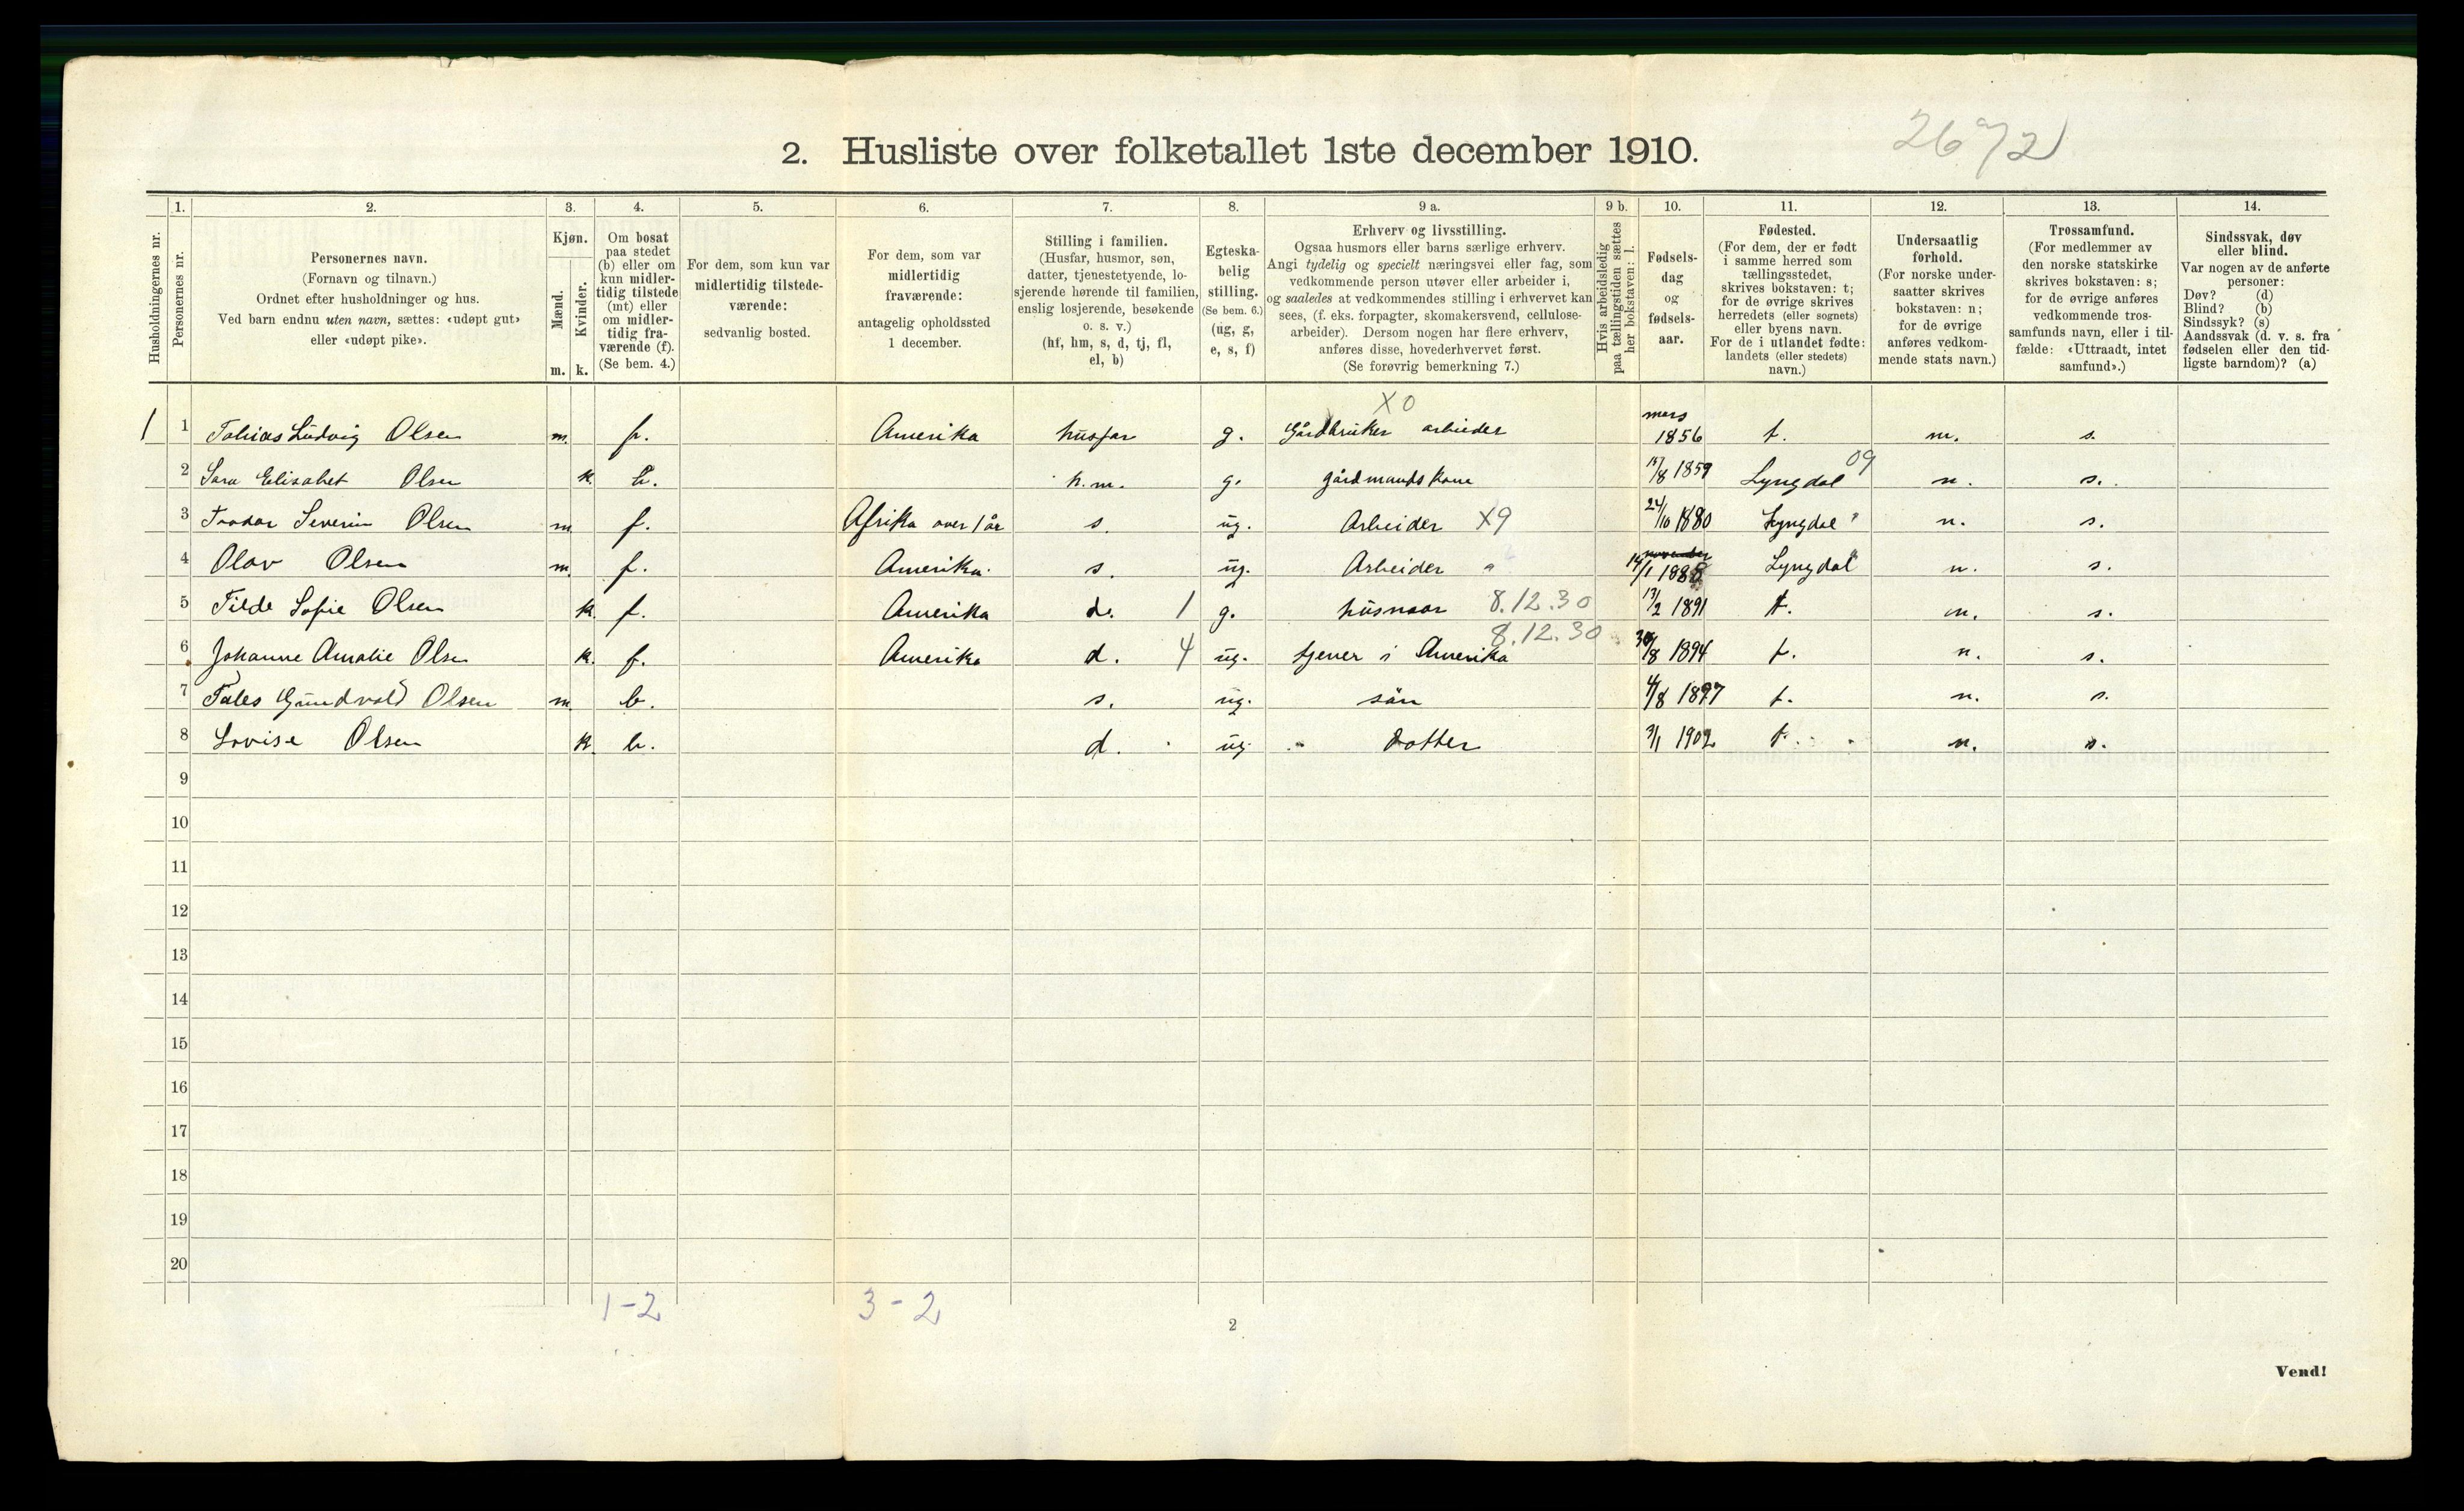 2. Husliste over folketallet 1ste december 1910.
Husholdningernes nr.
1. Personernes nr.
2. Personernes navn.
(Fornavn og tilnavn.)
Ordnet efter husholdninger og hus.
Ved barn endnu uten navn, sættes: «udøpt gut»
eller «udøpt pike».
3. Kjøn.
Mænd. m.
Kvinder. k.
4. Om bosat
paa stedet
(b) eller om
kun midler-
tidig tilstede
(mt) eller
om midler-
tidig fra-
værende (f).
(Se bem. 4.)
5. For dem, som kun var
midlertidig tilstede-
værende:
sedvanlig bosted.
6. For dem, som var
midlertidig
fraværende:
antagelig opholdssted
1 december.
7. Stilling i familien.
(Husfar, husmor, søn,
datter, tjenestetyende, lo-
sjerende hørende til familien,
enslig losjerende, besøkende
o. s. v.)
(hf, hm, s, d, tj, fl,
el, b)
8. Egteska-
belig
stilling.
(Se bem. 6.)
(ug, g,
e, s, f)
9 a. Erhverv og livsstilling.
Ogsaa husmors eller barns særlige erhverv.
Angi tydelig og specielt næringsvei eller fag, som
vedkommende person utøver eller arbeider i,
og saaledes at vedkommendes stilling i erhvervet kan
sees, (f. eks. forpagter, skomakersvend, cellulose-
arbeider). Dersom nogen har flere erhverv,
anføres disse, hovederhvervet først.
(Se forøvrig bemerkning 7.)
9 b. Hvis arbeidsledig
paa tællingstiden sættes
her bokstaven: l.
10. Fødsels-
dag
og
fødsels-
aar.
11. Fødested.
(For dem, der er født
i samme herred som
tællingsstedet,
skrives bokstaven: t;
for de øvrige skrives
herredets (eller sognets)
eller byens navn.
For de i utlandet fødte:
landets (eller stedets)
navn.)
12. Undersaatlig
forhold.
(For norske under-
saatter skrives
bokstaven: n;
for de øvrige
anføres vedkom-
mende stats navn.)
13. Trossamfund.
(For medlemmer av
den norske statskirke
skrives bokstaven: s;
for de øvrige anføres
vedkommende tros-
samfunds navn, eller i til-
fælde: «Uttraadt, intet
samfund».)
14. Sindssvak, døv
eller blind.
Var nogen av de anførte
personer:
Døv? (d)
Blind? (b)
Sindssyk? (s)
Aandssvak (d. v. s. fra
fødselen eller den tid-
ligste barndom)? (a)
X 0
1 1 Tobias Ludvig Olsen m. f. Amerika husfar g. Gårdbruker arbieder mars 1856 t. n. s.
2 Sara Elisabet Olsen k. b. h.m. g. gårdmands kone 15/8 1859 Lyngdal 09 n. s.
3 Teodor Severin Olsen m. f. Afrika over 1 år s. ug. Arbeider X9 24/10 1880 Lyngdal " n. s.
4 Olav Olsen m. f. Amerika. s. ug. Arbeider " 14/1 1885 Lyngdal " n. s.
5 Tilde Sofie Olsen k. f. Amerika d. 1 g. husmor 8.12.30 13/2 1891 t. n. s.
6 Johanne Amalie Olsen k. f. Amerika d. 4 ug. tjener i Amerika 8.12.30 30/8 1894 t. n. s.
7 Tales Gundvald Olsen m. b. s. ug. sön 4/8 1897 t. n. s.
8 Lovise Olsen k. b. d. ug. dotter 3/1 1902 t. n. s.
9
10
11
12
13
14
15
16
17
18
19
20
1-2 3-2
2
Vend!